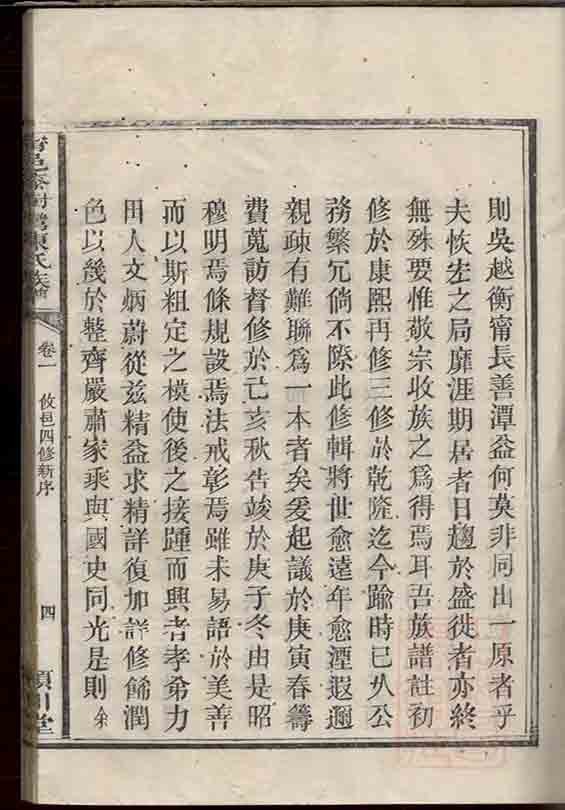 則吳越衡甯長善潭益何莫非同出一原者乎
夫恢宏之局靡涯期居者日趨於盛徙者亦終
無殊要惟敬宗收族之爲得焉耳吾族譜註初
修於康熙再修三修於乾隆迄今踰時已久公
務繁冗倘不際此修輯將世愈遠年愈湮遐邇
親疎有難聯爲一本者矣爰起議於庚寅春籌
費蒐訪督修於己亥秋告竣於庚子冬由是昭
穆明焉條規設焉法戒彰焉雖未易語於美善
而以斯粗定之模使後之接踵而興者孝弟力
田人文炳蔚從茲精益求精詳復加詳修餙潤
色以幾於整齊嚴肅家乘與國史同光是則余
陳氏族譜
卷一
攸邑四修新序
四
潁川堂